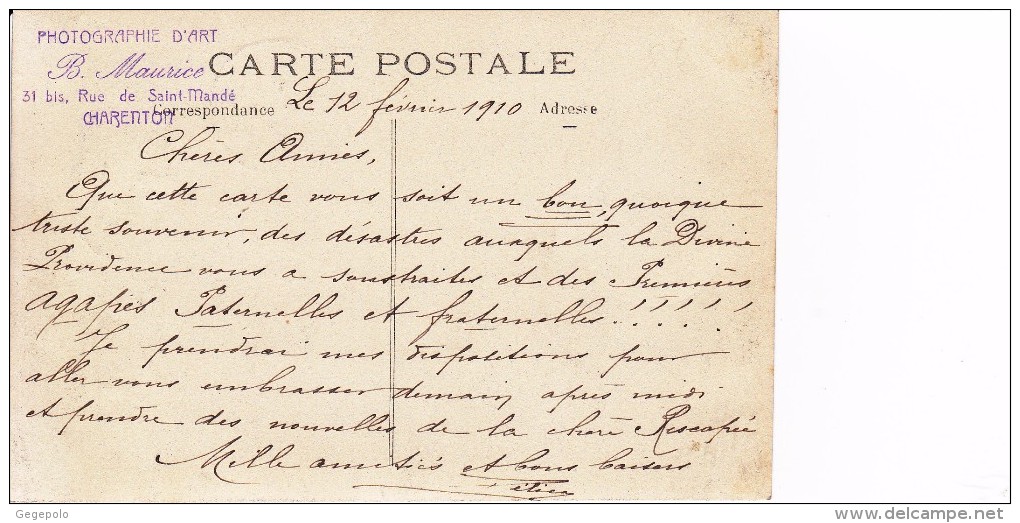 PHOTOGRAPHIE D'ART
B. Maurice
31 bis, Rue de Saint-Mandé
CHARENTON
CARTE POSTALE
Correspondance
Adresse
Le 12 février 1910
Chères Amies,
Que cette carte vous soit un bon, quoique
triste souvenir, des désastres auxquels la Divine
Providence vous a soustraites et des Premières
agapes Paternelles et fraternelles!!!!!
Je prendrai mes dispositions pour
aller vous embrasser demain, après midi
et prendre des nouvelles de la chère Rescapée
Mille amitiés et bons baisers
Gegepolo
delcampe.net